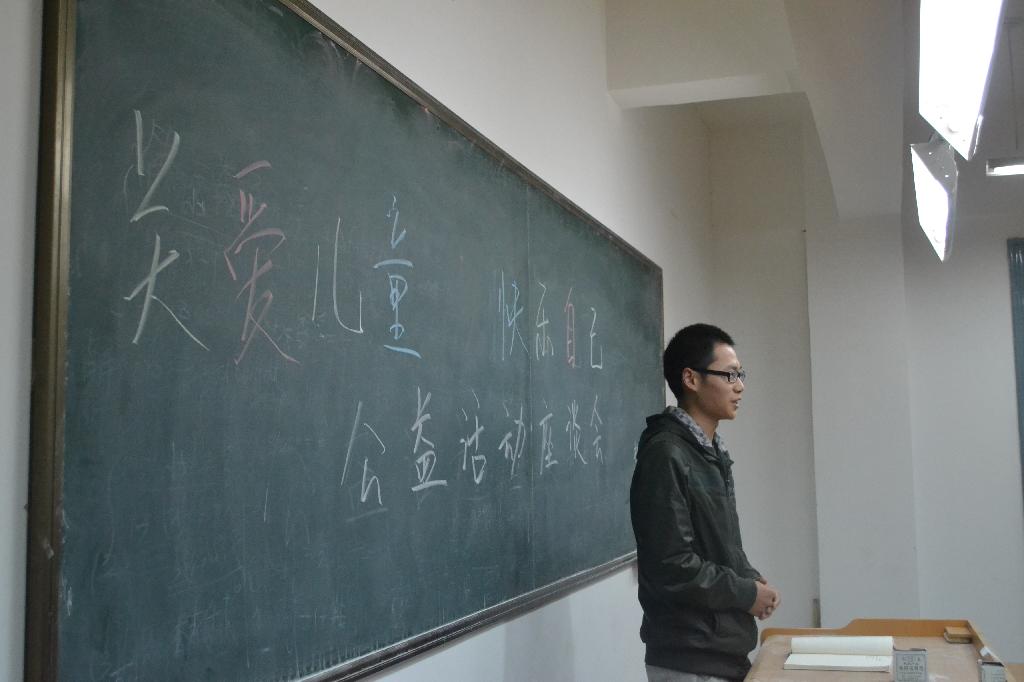 关爱儿童 快乐自己
公益活动座谈会